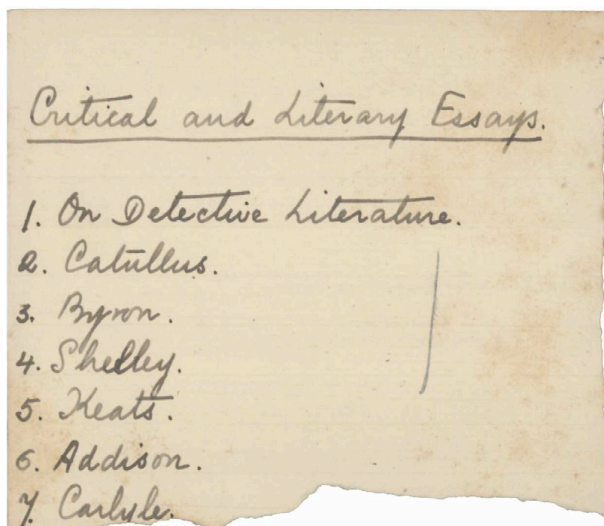 Critical and Literary Essays.
1. On Detective Literature.
2. Catullus.
3. Byron.
4. Shelley.
5. Keats.
6. Addison.
7 Carlyle.